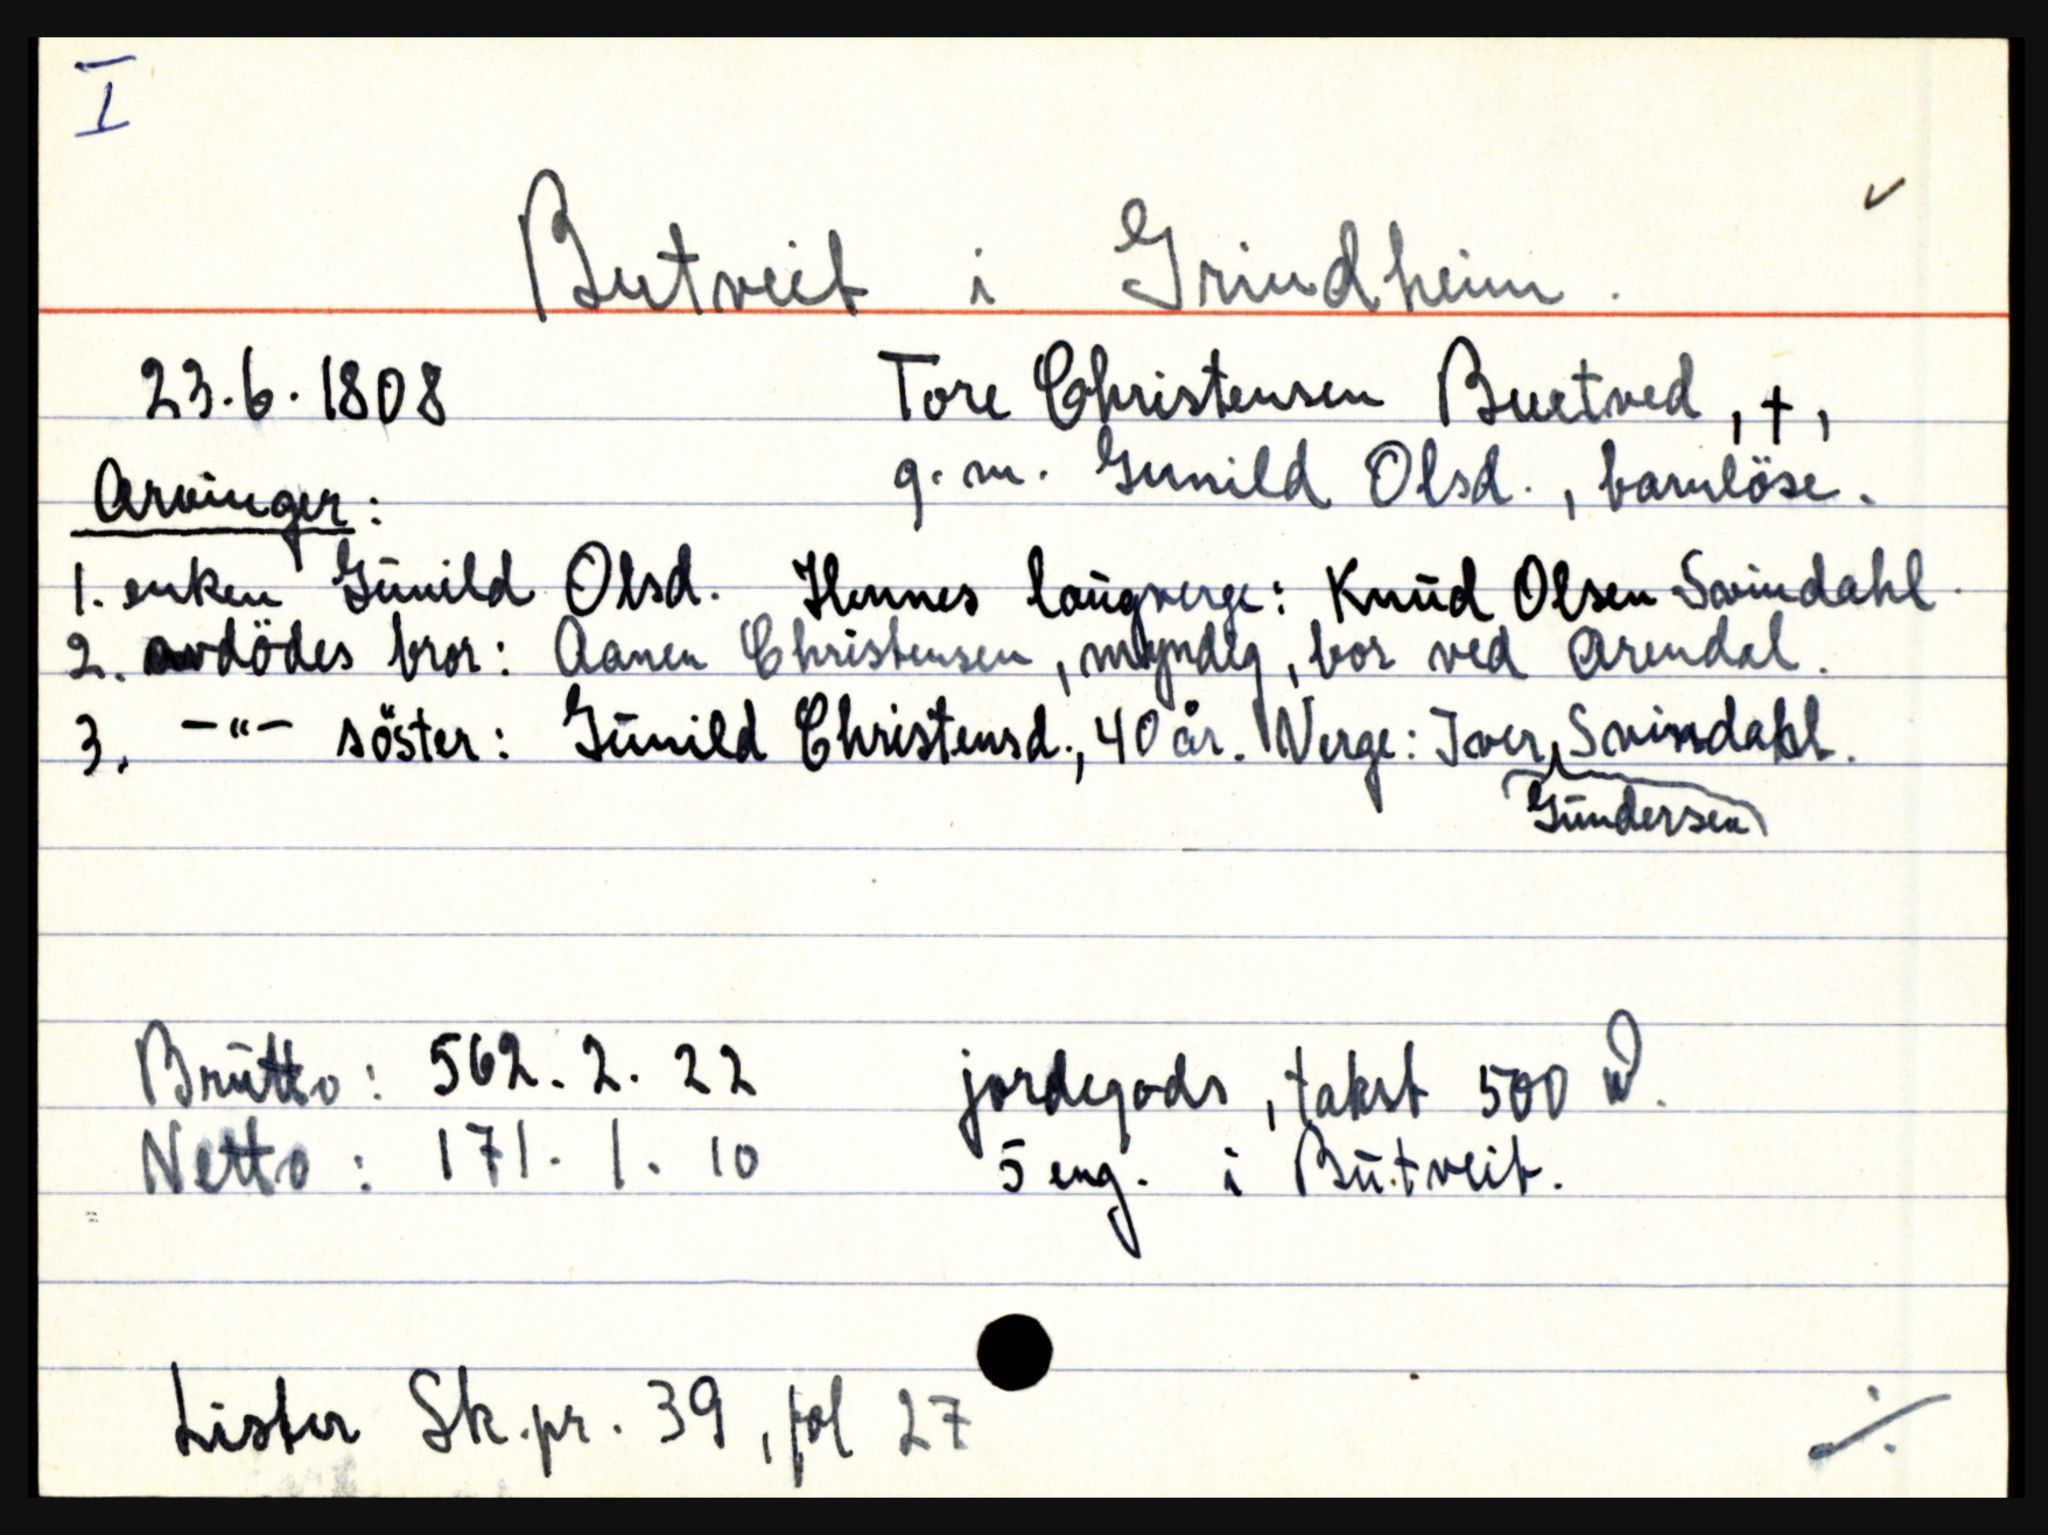 I
✓
Butveit i Grindheim.
23.6.1808 Tore Christensen Buetved, †,
g.m. Gunild Olsd., barnlöse.
Arvinger:
1. enken Gunild Olsd. Hennes laugverge: Knud Olsen Svindahl.
2. avdödes bror: Aanen Christensen, myndig, bor ved Arendal.
3. -"- söster: Gunild Christensd., 40 år. Verge: Iver Svindahl.
Gundersen
Brutto: 562. 2. 22 jordegods, takst 500
Netto: 171. 1. 10 5 eng. i Butveit.
Lister Sk.pr. 39, fol 27